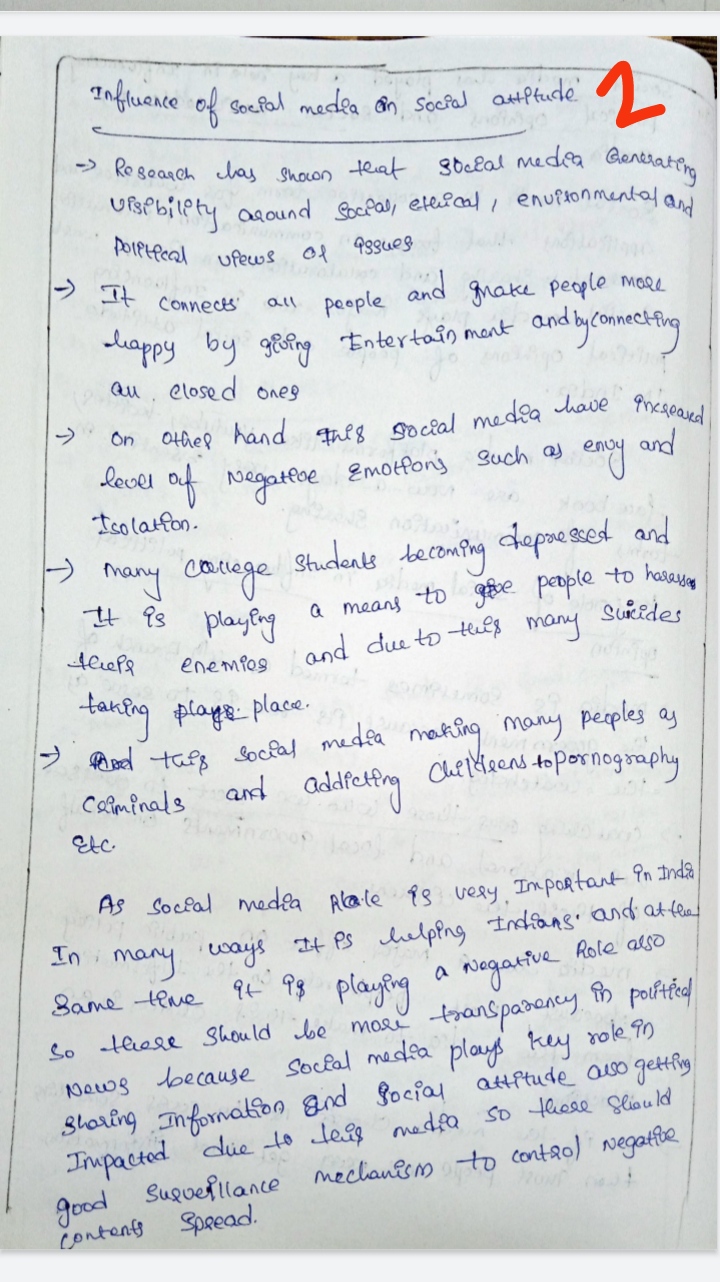 2
Influence of social media on social attitude
→ Research has shown that social media Generating
visibility around social, ethical, environmental and
political views of issues
→ It connects all people and make people more
happy by giving Entertainment and by connecting
all closed ones
→ on other hand this social media have increased
level of Negative Emotions such as envy and
Isolation.
→ many college students becoming depressed and
It is playing a means to give people to harass
their enemies and due to this many suicides
taking place.
→ And this social media making many peoples as
criminals and addicting childrens to pornography
Etc.
As social media Role is very Important in India
In many ways It is helping Indians. and at the
same time it is playing a Negative Role also
so there should be more transparency in political
News because social media plays key role in
sharing Information and social attitude also getting
Impacted due to this media so there should
good surveillance mechanism to control negative
contents spread.